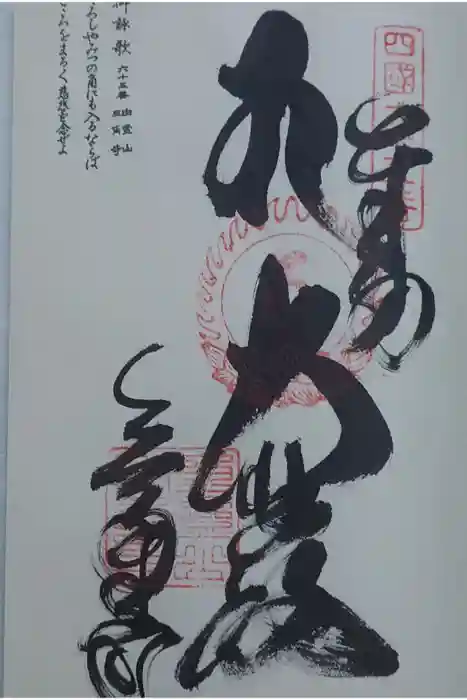 四國六十五番
奉納
大悲殿
三角寺
御詠歌 六十五番 由霊山 三角寺
ろしや三つの角にも入るならば
ろをまろく慈悲を念ぜよ